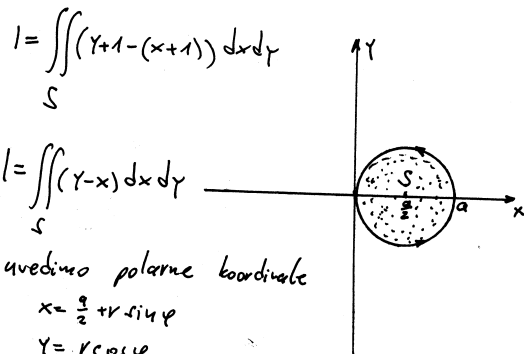 I = ∬ (y+1-(x+1)) dxdy
S
I = ∬ (y-x) dx dy
S
uvedimo polarne koordinate
x = a/2 + r sin φ
y = r cos φ
Y
S
a/2
a
x